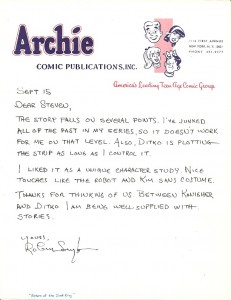 Archie
COMIC PUBLICATIONS, INC.
NEW YORK, N.Y. 10011
America's Leading Teen-Age Comic Group
SEPT 15
DEAR STEVEN,
THE STORY FAILS ON SEVERAL POINTS. I'VE JUNKED
ALL OF THE PAST IN MY SERIES, SO IT DOESN'T WORK
FOR ME ON THAT LEVEL. ALSO, DITKO IS PLOTTING
THE STRIP AS LONG AS I CONTROL IT.
I LIKED IT AS A UNIQUE CHARACTER STUDY. NICE
TOUCHES LIKE THE ROBOT AND KIM SANS COSTUME.
THANKS FOR THINKING OF US. BETWEEN KANIGHER
AND DITKO I AM BEING WELL SUPPLIED WITH
STORIES.
YOURS,